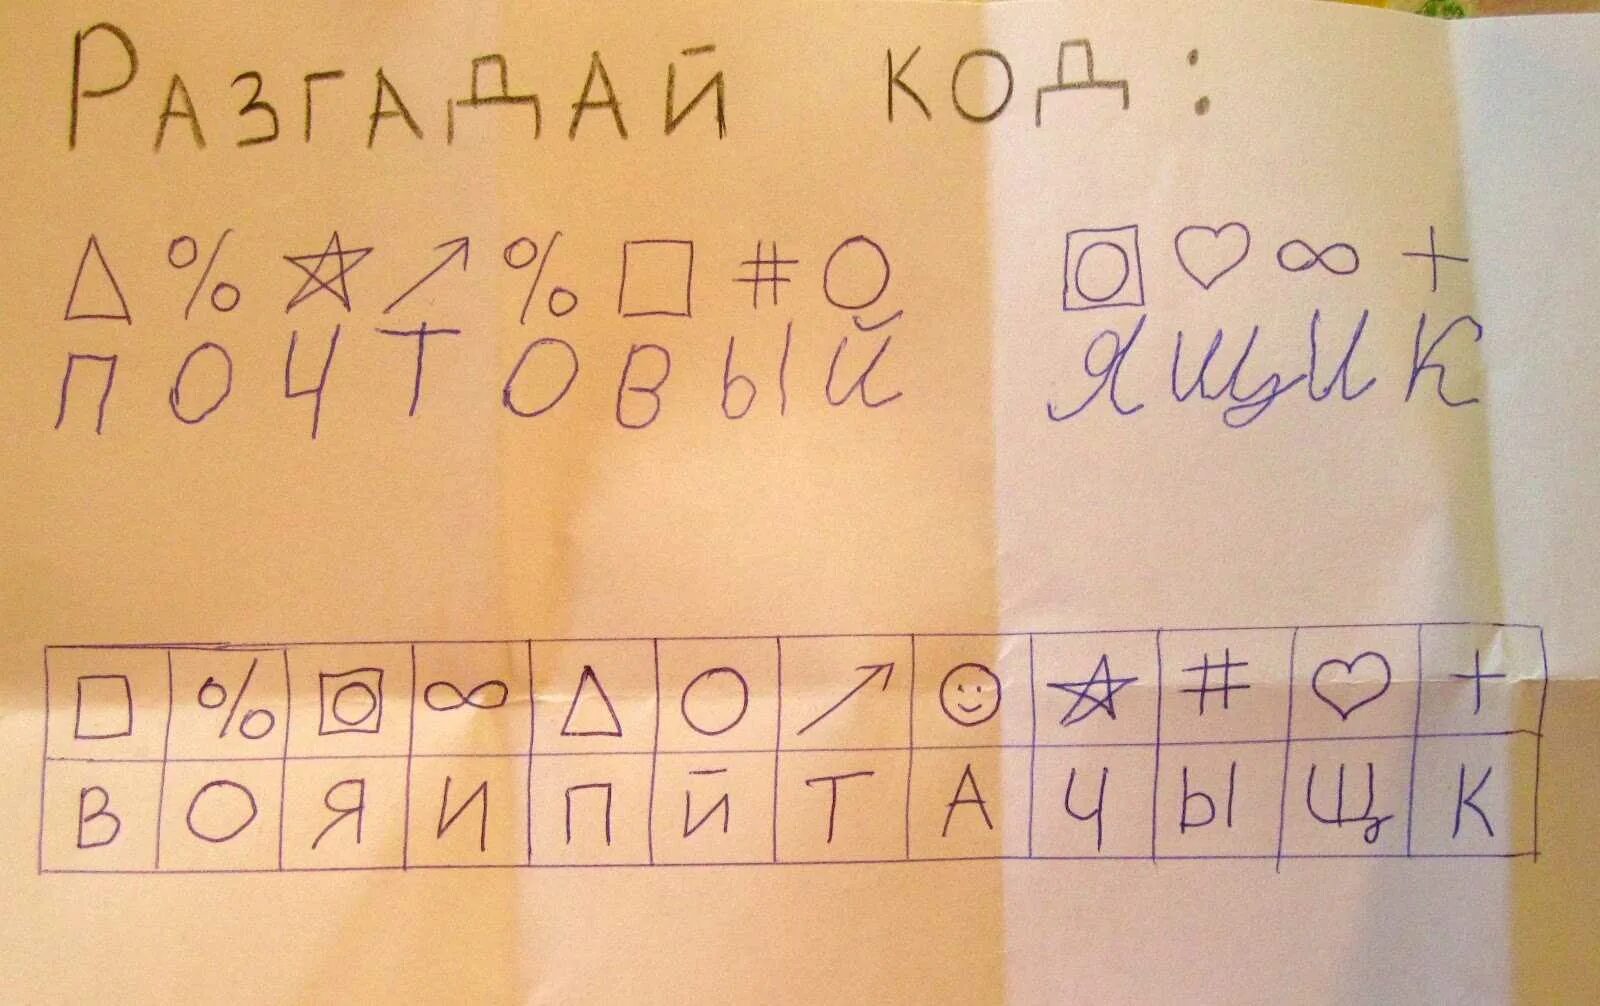 РАЗГАДАЙ КОД:
△ % ☆ ↗ % □ # ○ ▣ ♡ ∞ +
ПОЧТОВЫЙ ЯЩИК
□ % ▣ ∞ △ ○ ↗ ☺ ☆ # ♡ +
В О Я И П Й Т А Ч Ы Щ К